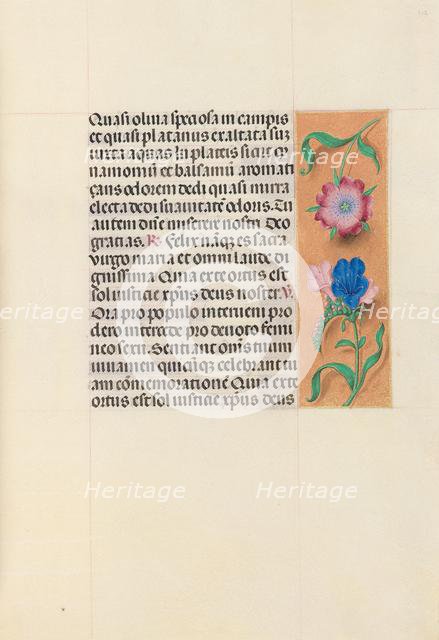 Quasi oliua speciosa in campis
et quasi platanus exaltata sū
iuxta aquas in plateis sicut cī
namomū et balsamū aromati
çans odorem dedi quasi mirra
electa dedi suauitatē odoris. Tu
autem dn̄e miserere nostri Deo
gracias. R. Felix nāqꝫ es sacra
virgo maria et omni laude di
gnissima Quia ex te ortus est
sol iusticie xp̄us deus noster. V.
Ora pro populo interueni pro
clero intercede pro deuoto femi
neo sexu Senciant omīs tuum
iuuamen quicūqꝫ celebrant tu
am cōmemorationē Quia ex te
ortus est sol iusticie xp̄us deus
Heritage
Heritage
Heritage
Heritage
Heritage